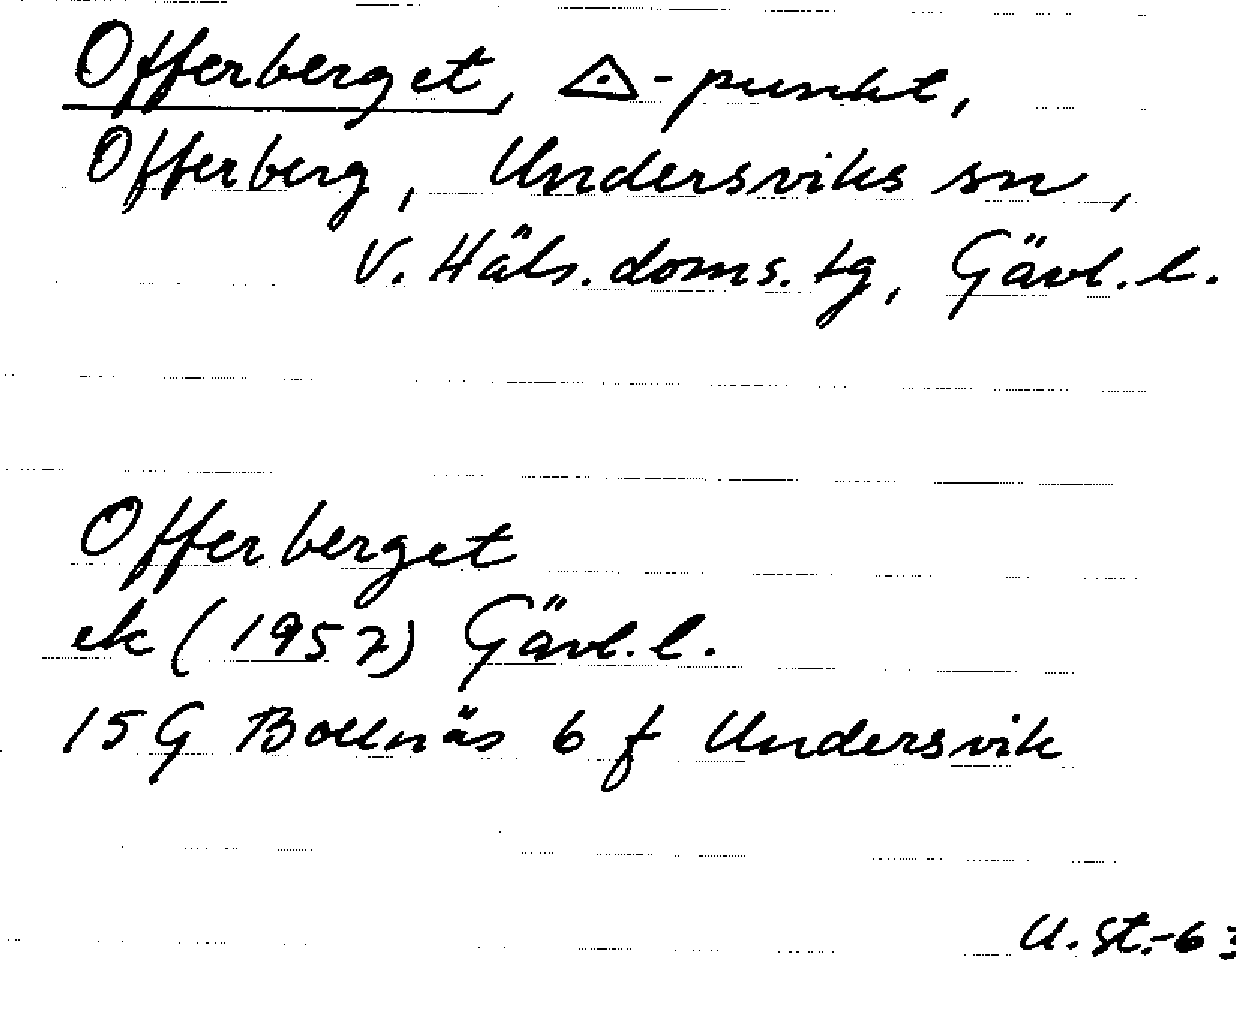 Offerberget, ◬-punkt,
Offerberg, Undersviks sn,
V. Häls. doms. tg, Gävl. l.
Offerberget
ek (1957) Gävl. l.
15 G Bollnäs 6 f Undersvik
U. St.-63